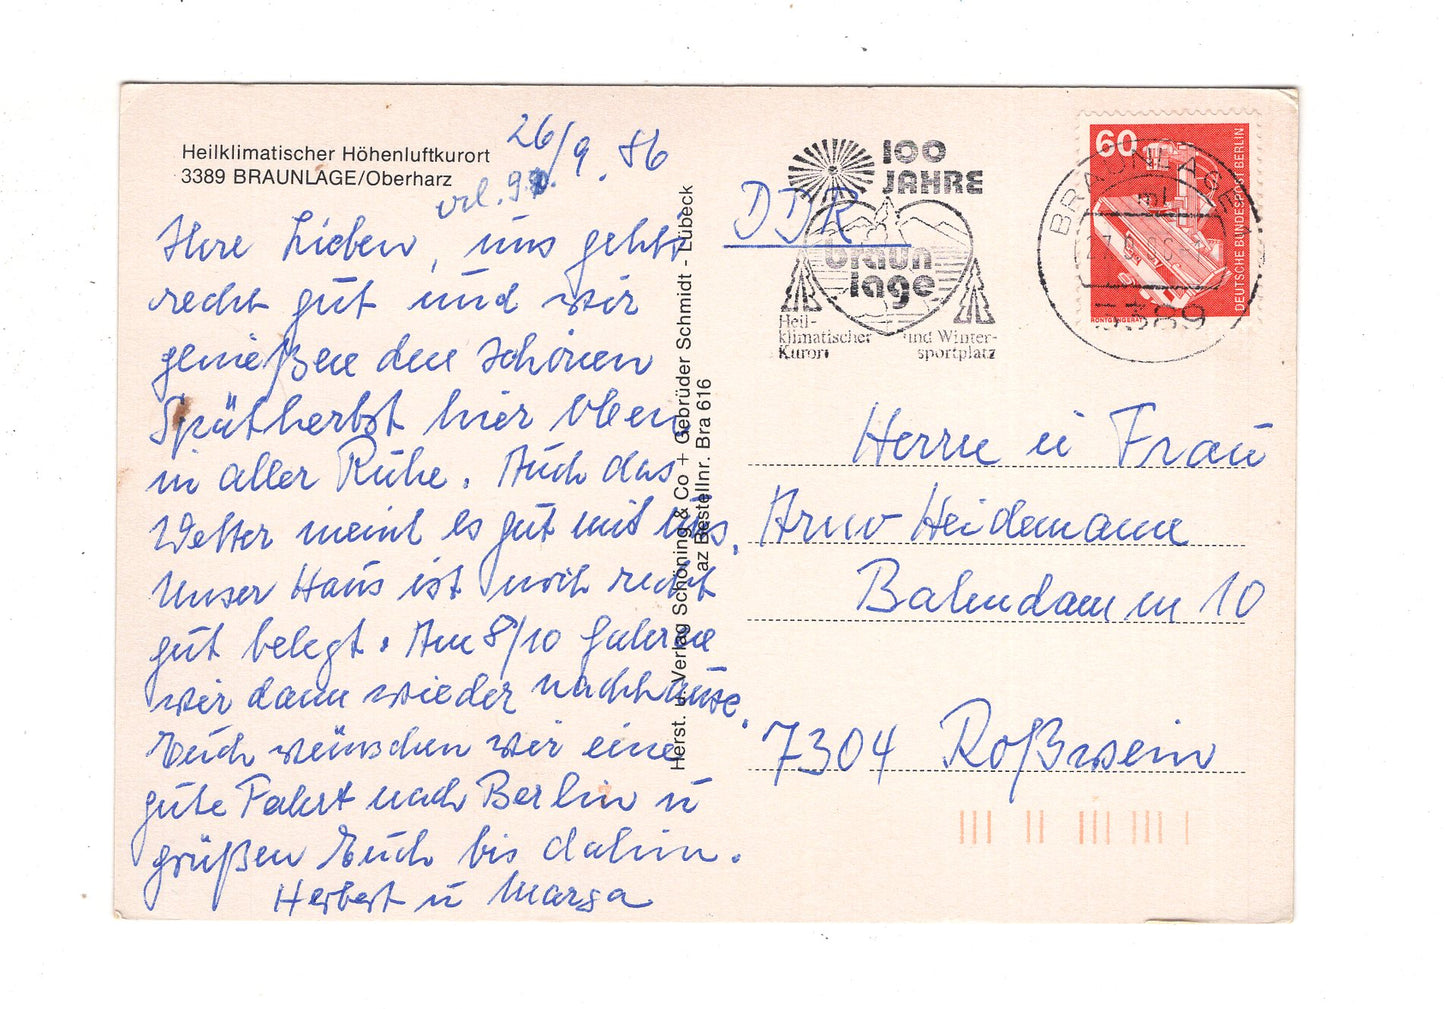 Heilklimatischer Höhenluftkurort
3389 BRAUNLAGE/Oberharz
26/9. 86
Ihre Lieben, uns geht's
recht gut und wir
genießen den schönen
Spätherbst hier oben
in aller Ruhe. Auch das
Wetter meint es gut mit uns.
Unser Haus ist noch recht
gut belegt. Am 8/10 fahren
wir dann wieder nachhause.
Euch wünschen wir eine
gute Fahrt nach Berlin u
grüßen Euch bis dahin.
Herbert u Marga
Herst. u. Verlag Schöning & Co + Gebrüder Schmidt - Lübeck
az Bestellnr. Bra 616
DDR
100
JAHRE
braun
lage
Heil-
klimatischer und Winter-
Kurort sportplatz
60
DEUTSCHE BUNDESPOST BERLIN
RÖNTGENGERÄT
BRAUNLAGE 1
3389
Herrn u Frau
Arno Heidemann
Bahndamm 10
7304 Roßwein